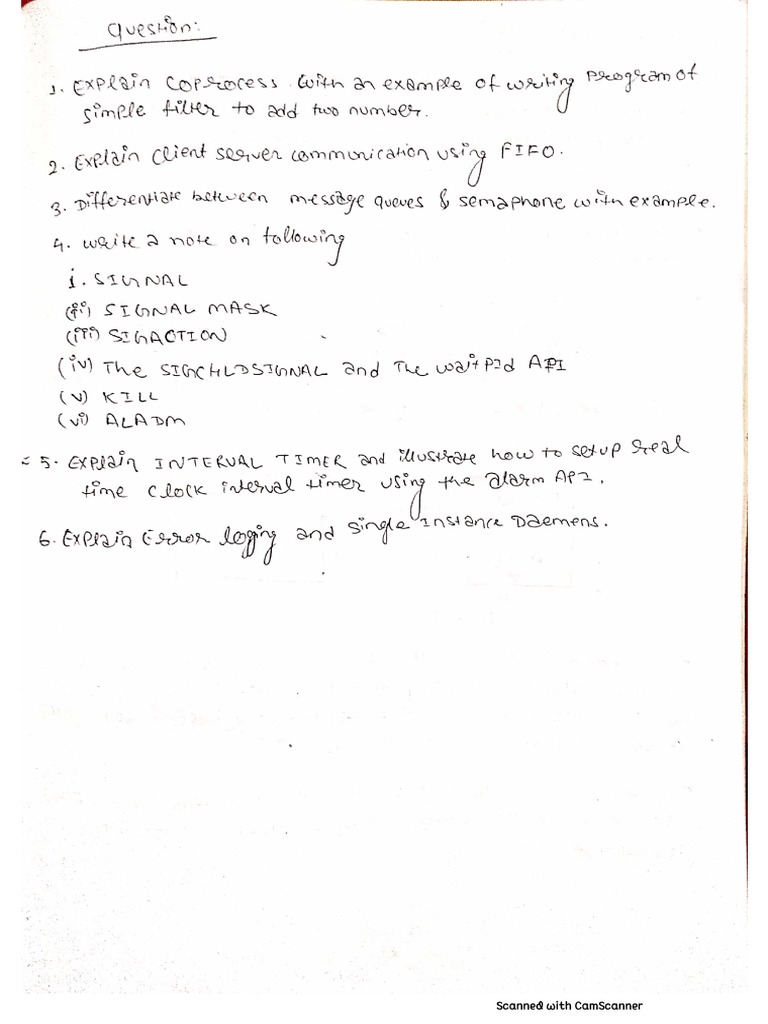 Question:
1. Explain coprocess with an example of writing program of
simple filter to add two number.
2. Explain client server communication using FIFO.
3. Differentiate between message queues & semaphone with example.
4. write a note on following
i. SIGNAL
(ii) SIGNAL MASK
(iii) SIGACTION
(iv) The SIGCHLDSIGNAL and The waitpid API
(v) KILL
(vi) ALADM
5. Explain INTERVAL TIMER and illustrate how to setup real
time clock interval timer using the alarm API.
6. Explain Error logging and single instance Daemens.
Scanned with CamScanner